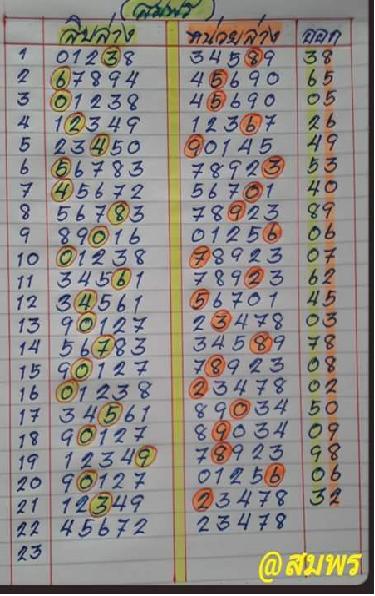 สมพร
สิบล่าง หน่วยล่าง ออก
1 01238 34589 38
2 67894 45690 65
3 01238 45690 05
4 12349 12367 26
5 23450 90145 49
6 56783 78923 53
7 45672 56701 40
8 56783 78923 89
9 89016 01256 06
10 01238 78923 07
11 34561 78923 62
12 34561 56701 45
13 90127 23478 03
14 56783 34589 78
15 90127 78923 08
16 01238 23478 02
17 34561 89034 50
18 90127 89034 09
19 12349 78923 98
20 90127 01256 06
21 12349 23478 32
22 45672 23478
23
@สมพร